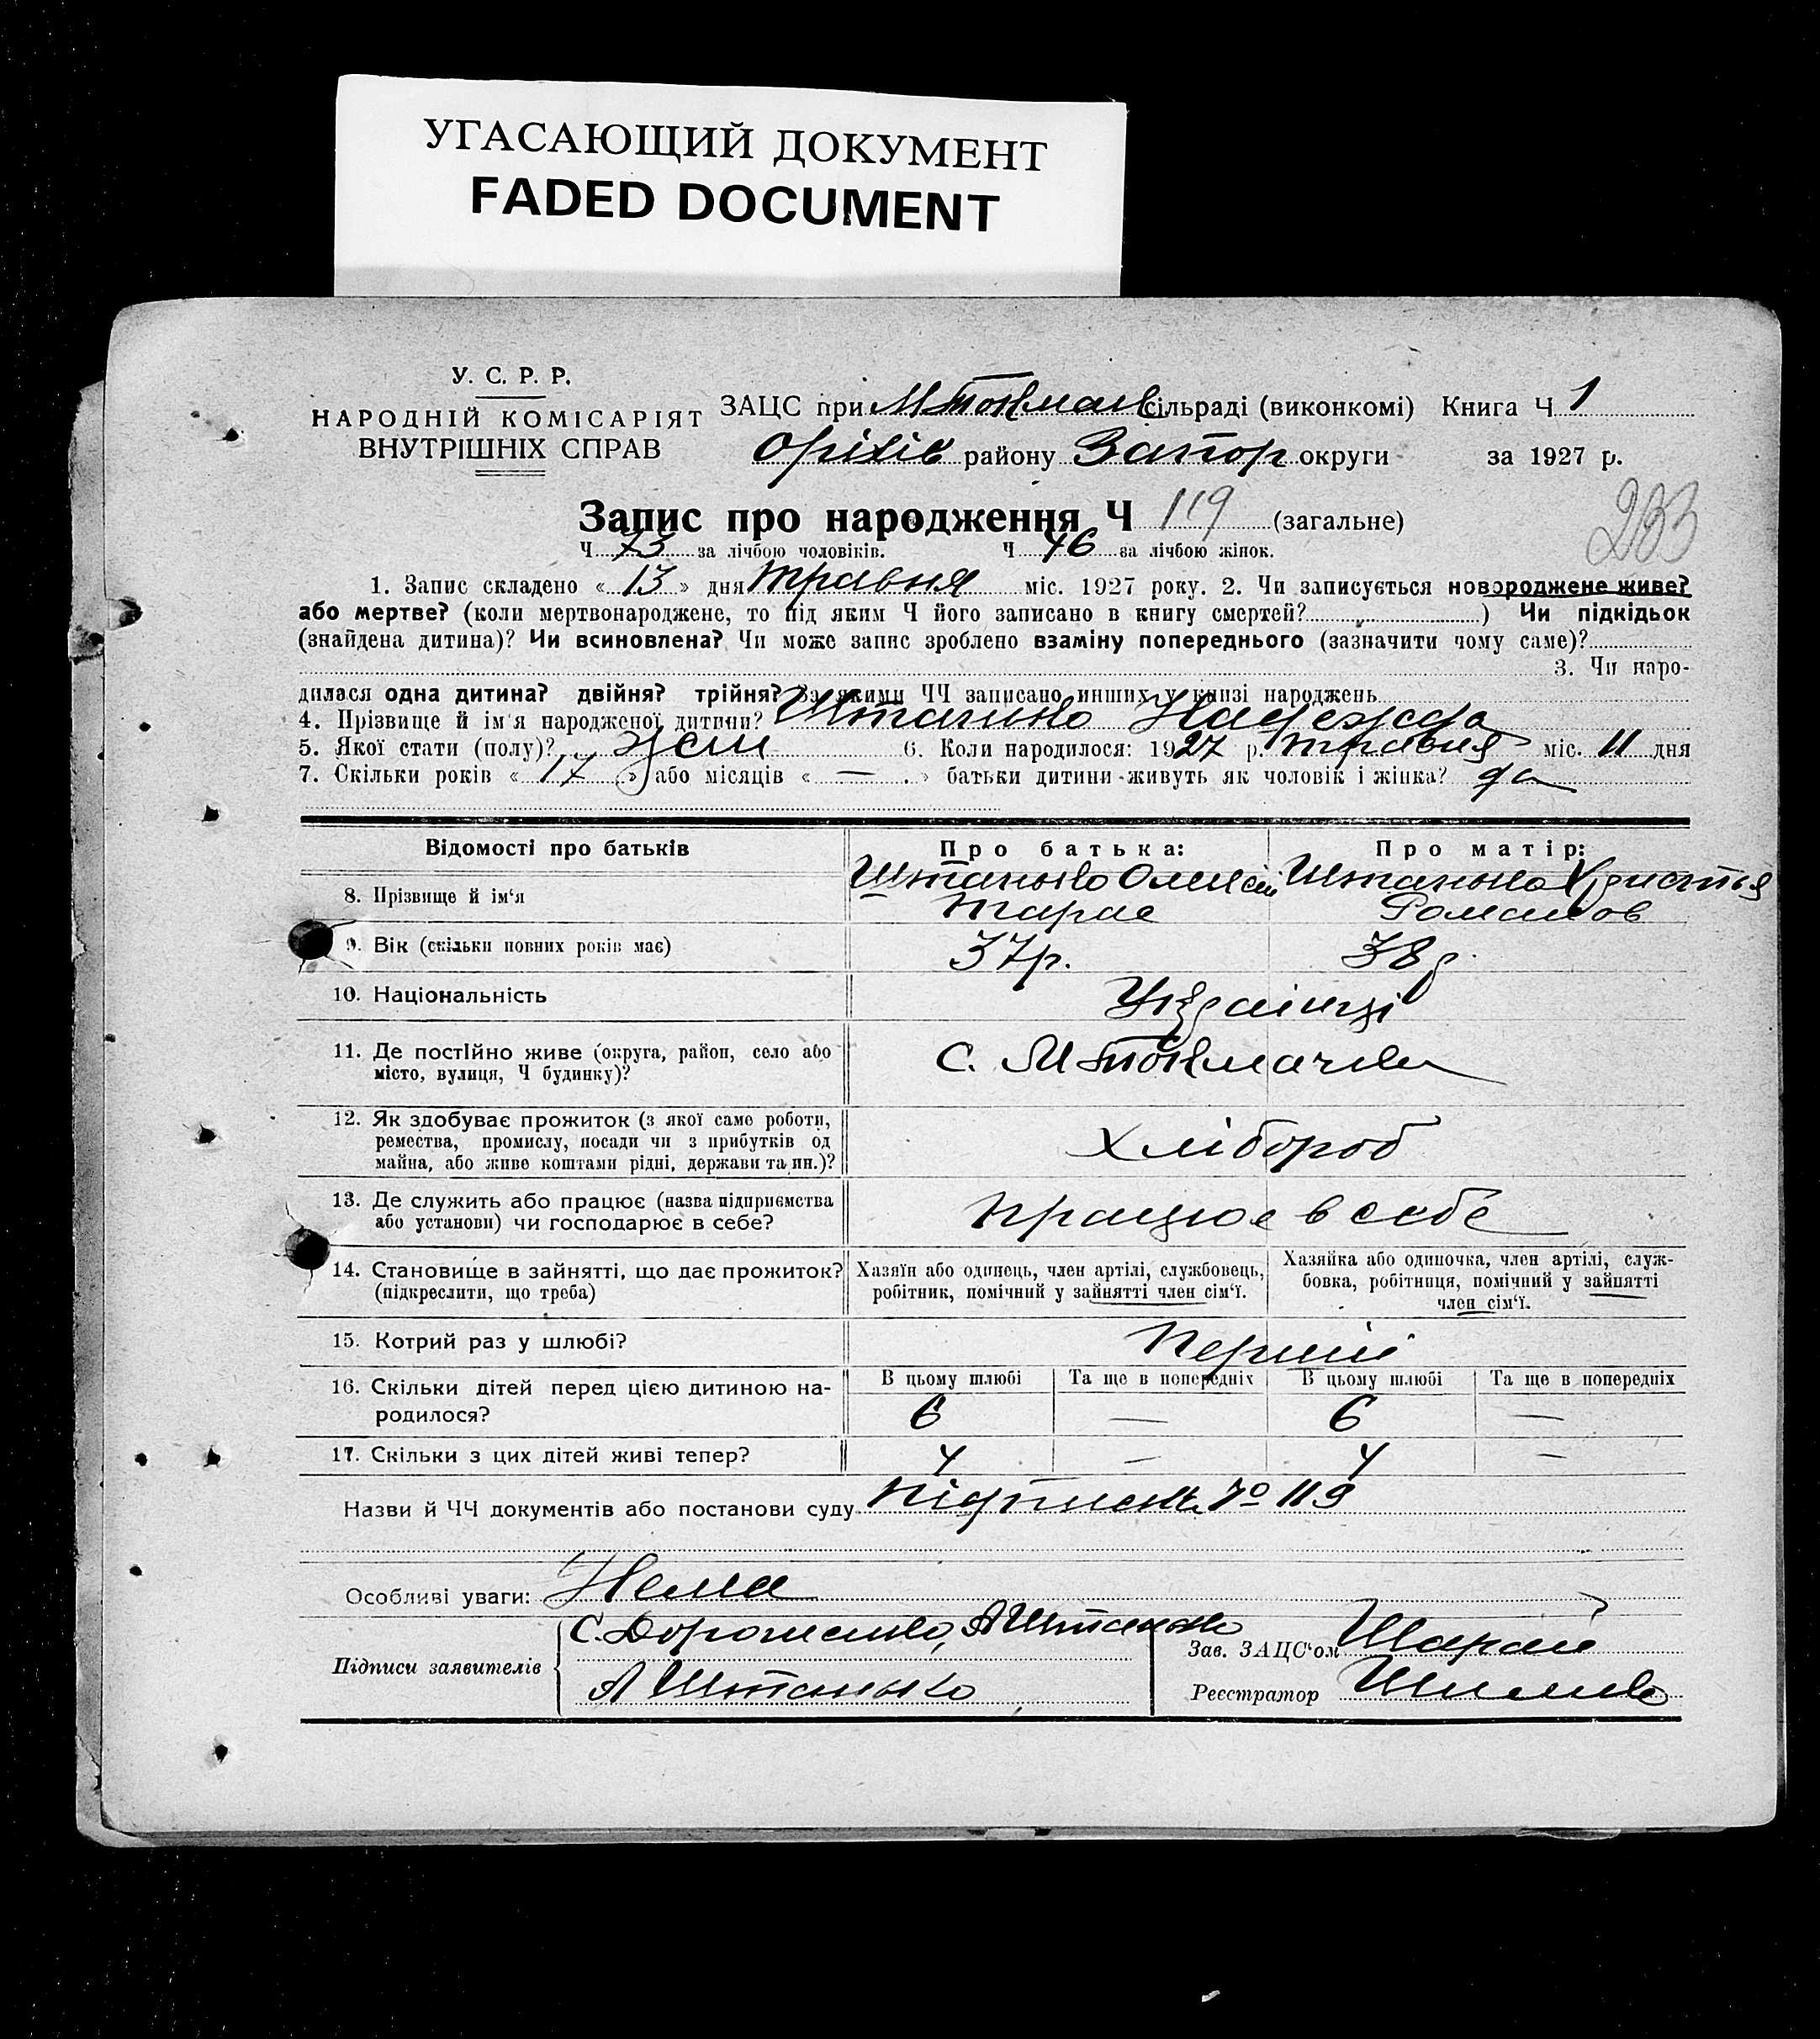 УГАСАЮЩИЙ ДОКУМЕНТ
FADED DOCUMENT
У. С. Р. Р.
НАРОДНІЙ КОМІСАРІЯТ
ВНУТРІШНІХ СПРАВ
ЗАЦС при М Токмач сільраді (виконкомі) Книга Ч 1
Оріхів району Запор округи за 1927 р.
Запис про народження Ч 119 (загальне)
233
Ч 73 за лічбою чоловіків. Ч 46 за лічбою жінок.
1. Запис складено « 13 » дня травня міс. 1927 року. 2. Чи записується новороджене живе?
або мертве? (коли мертвонароджене, то під яким Ч його записано в книгу смертей? ) Чи підкідьок
(знайдена дитина)? Чи всиновлена? Чи може запис зроблено взаміну попереднього (зазначити чому саме)?
3. Чи наро-
дилася одна дитина? двійня? трійня? За якими ЧЧ записано инших у книзі народжень
4. Прізвище й ім'я народженої дитини? Штанько Надежда
5. Якої стати (полу)? жен 6. Коли народилося: 1927 р. травня міс. 11 дня
7. Скільки років « 17 » або місяців « — » батьки дитини живуть як чоловік і жінка? да
Відомості про батьків Про батька: Про матір:
8. Прізвище й ім'я Штанько Олексій Штанько Христья
Тарас Романов
9. Вік (скільки повних років має) 37р. 38р.
10. Національність Українці
11. Де постійно живе (округа, район, село або
місто, вулиця, Ч будинку)? С. М Токмачка
12. Як здобуває прожиток (з якої саме роботи,
ремества, промислу, посади чи з прибутків од
майна, або живе коштами рідні, держави та ин.)? Хлібороб
13. Де служить або працює (назва підприємства
або установи) чи господарює в себе? працює в себе
14. Становище в зайнятті, що дає прожиток?
(підкреслити, що треба)
Хазяїн або одинець, член артілі, службовець,
робітник, помічний у зайнятті член сім'ї.
Хазяйка або одиночка, член артілі, служ-
бовка, робітниця, помічний у зайнятті
член сім'ї.
15. Котрий раз у шлюбі? Перший
16. Скільки дітей перед цією дитиною на-
родилося?
В цьому шлюбі Та ще в попередніх В цьому шлюбі Та ще в попередніх
6 — 6 —
17. Скільки з цих дітей живі тепер? 4 — 4 —
Назви й ЧЧ документів або постанови суду Підписка № 119
Особливі уваги: Нема
Підписи заявителів С. Дорошенко, А Штанько
А Штанько
Зав. ЗАЦС'ом Шарай
Реєстратор